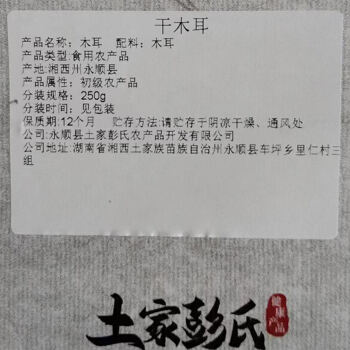 干木耳
产品名称：木耳 配料：木耳
产品类型:食用农产品
产地:湘西州永顺县
产品属性：初级农产品
分装规格：250g
分装时间：见包装
保质期:12个月 贮存方法:请贮存于阴凉干燥、通风处
公司:永顺县土家彭氏农产品开发有限公司
公司地址:湖南省湘西土家族苗族自治州永顺县车坪乡里仁村三
组
土家彭氏
健康产品